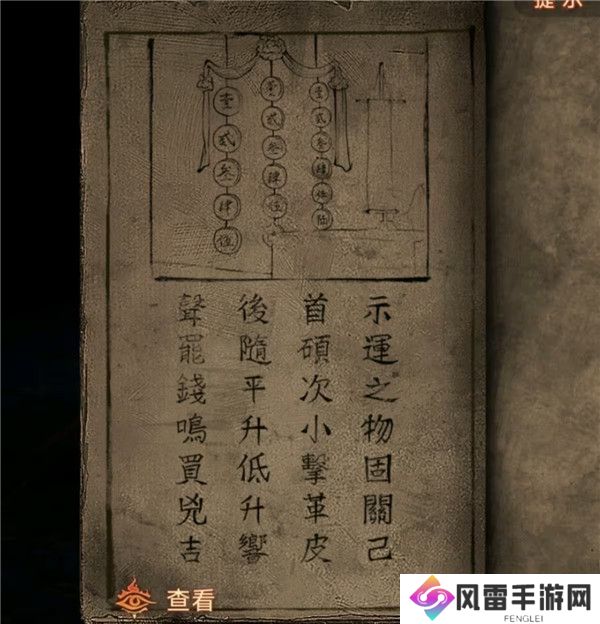 提示
壹
貳
叁
肆
伍
壹
貳
叁
肆
伍
壹
貳
叁
肆
伍
陆
示運之物固關己
首碩次小擊革皮
後隨平升低升響
聲罷錢鳴買兇吉
查看
风雷手游网
FENGLEI